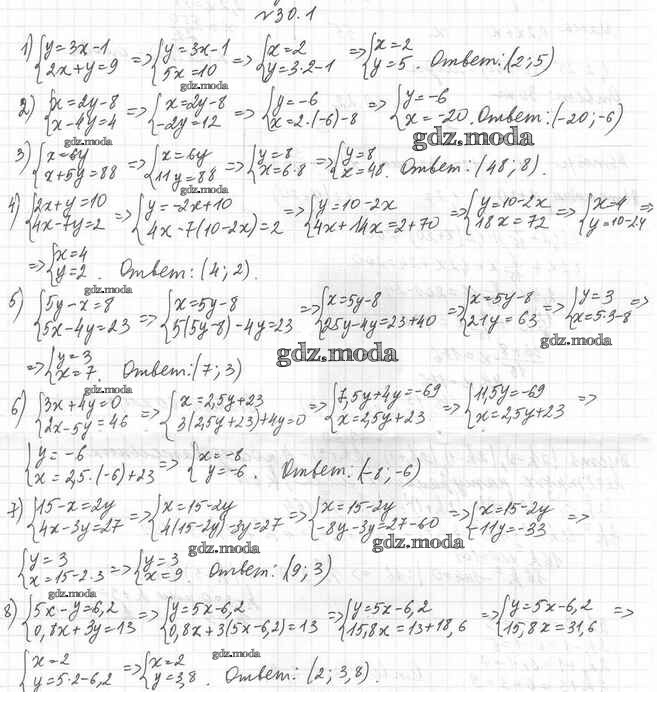 №30.1
1) {y=3x-1 2x+y=9 => {y=3x-1 5x=10 => {x=2 y=3·2-1 => {x=2 y=5. Ответ: (2; 5)
gdz.moda
2) {x=2y-8 x-4y=4 => {x=2y-8 -2y=12 => {y=-6 x=2·(-6)-8 => {y=-6 x=-20. Ответ: (-20; -6)
gdz.moda
gdz.moda
3) {x=6y x+5y=88 => {x=6y 11y=88 => {y=8 x=6·8 => {y=8 x=48. Ответ: (48; 8).
gdz.moda
4) {2x+y=10 4x-7y=2 => {y=-2x+10 4x-7(10-2x)=2 => {y=10-2x 4x+14x=2+70 => {y=10-2x 18x=72 => {x=4 y=10-2·4 =>
=> {x=4 y=2. Ответ: (4; 2).
gdz.moda
5) {5y-x=8 5x-4y=23 => {x=5y-8 5(5y-8)-4y=23 => {x=5y-8 25y-4y=23+40 => {x=5y-8 21y=63 => {y=3 x=5·3-8 =>
gdz.moda
gdz.moda
=> {y=3 x=7. Ответ: (7; 3)
gdz.moda
6) {3x+4y=0 2x-5y=46 => {x=2,5y+23 3(2,5y+23)+4y=0 => {7,5y+4y=-69 x=2,5y+23 => {11,5y=-69 x=2,5y+23 =>
{y=-6 x=2,5·(-6)+23 => {x=-8 y=-6. Ответ: (-8; -6)
7) {15-x=2y 4x-3y=27 => {x=15-2y 4(15-2y)-3y=27 => {x=15-2y -8y-3y=27-60 => {x=15-2y -11y=-33 =>
gdz.moda
gdz.moda
{y=3 x=15-2·3 => {y=3 x=9. Ответ: (9; 3)
gdz.moda
8) {5x-y=6,2 0,8x+3y=13 => {y=5x-6,2 0,8x+3(5x-6,2)=13 => {y=5x-6,2 15,8x=13+18,6 => {y=5x-6,2 15,8x=31,6 =>
gdz.moda
{x=2 y=5·2-6,2 => {x=2 y=3,8. Ответ: (2; 3,8).